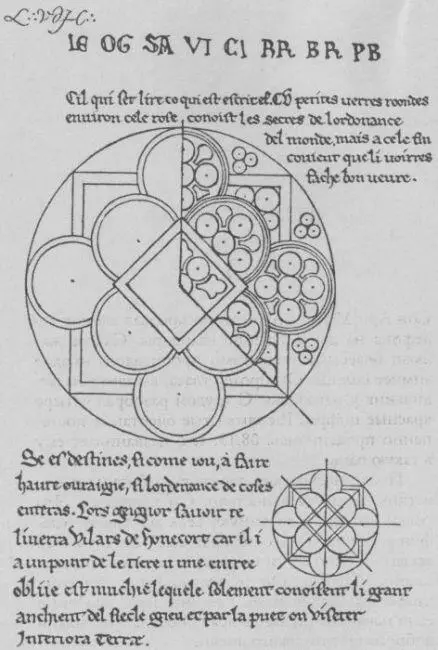 IE OG SA VI CI RR BR PB
Cil qui set lire co qui est escrit el CV petites verres roondes
environ cele rose, conoist les secres de lordonance
del monde, mais a cele fin
covient que li voirres
fache bon uevre.
Se es destines, si come vou, a faire
haute ouraigne, si lordenance de coses
enteras. Lors gignor savoir te
liverra Vilars de Honecort car il i
a un point de le tiere u une entree
obliie est muchie lequele solement conoisent li grant
anchient del siecle grieu et par la puet on Visiter
Inferiora Terræ.